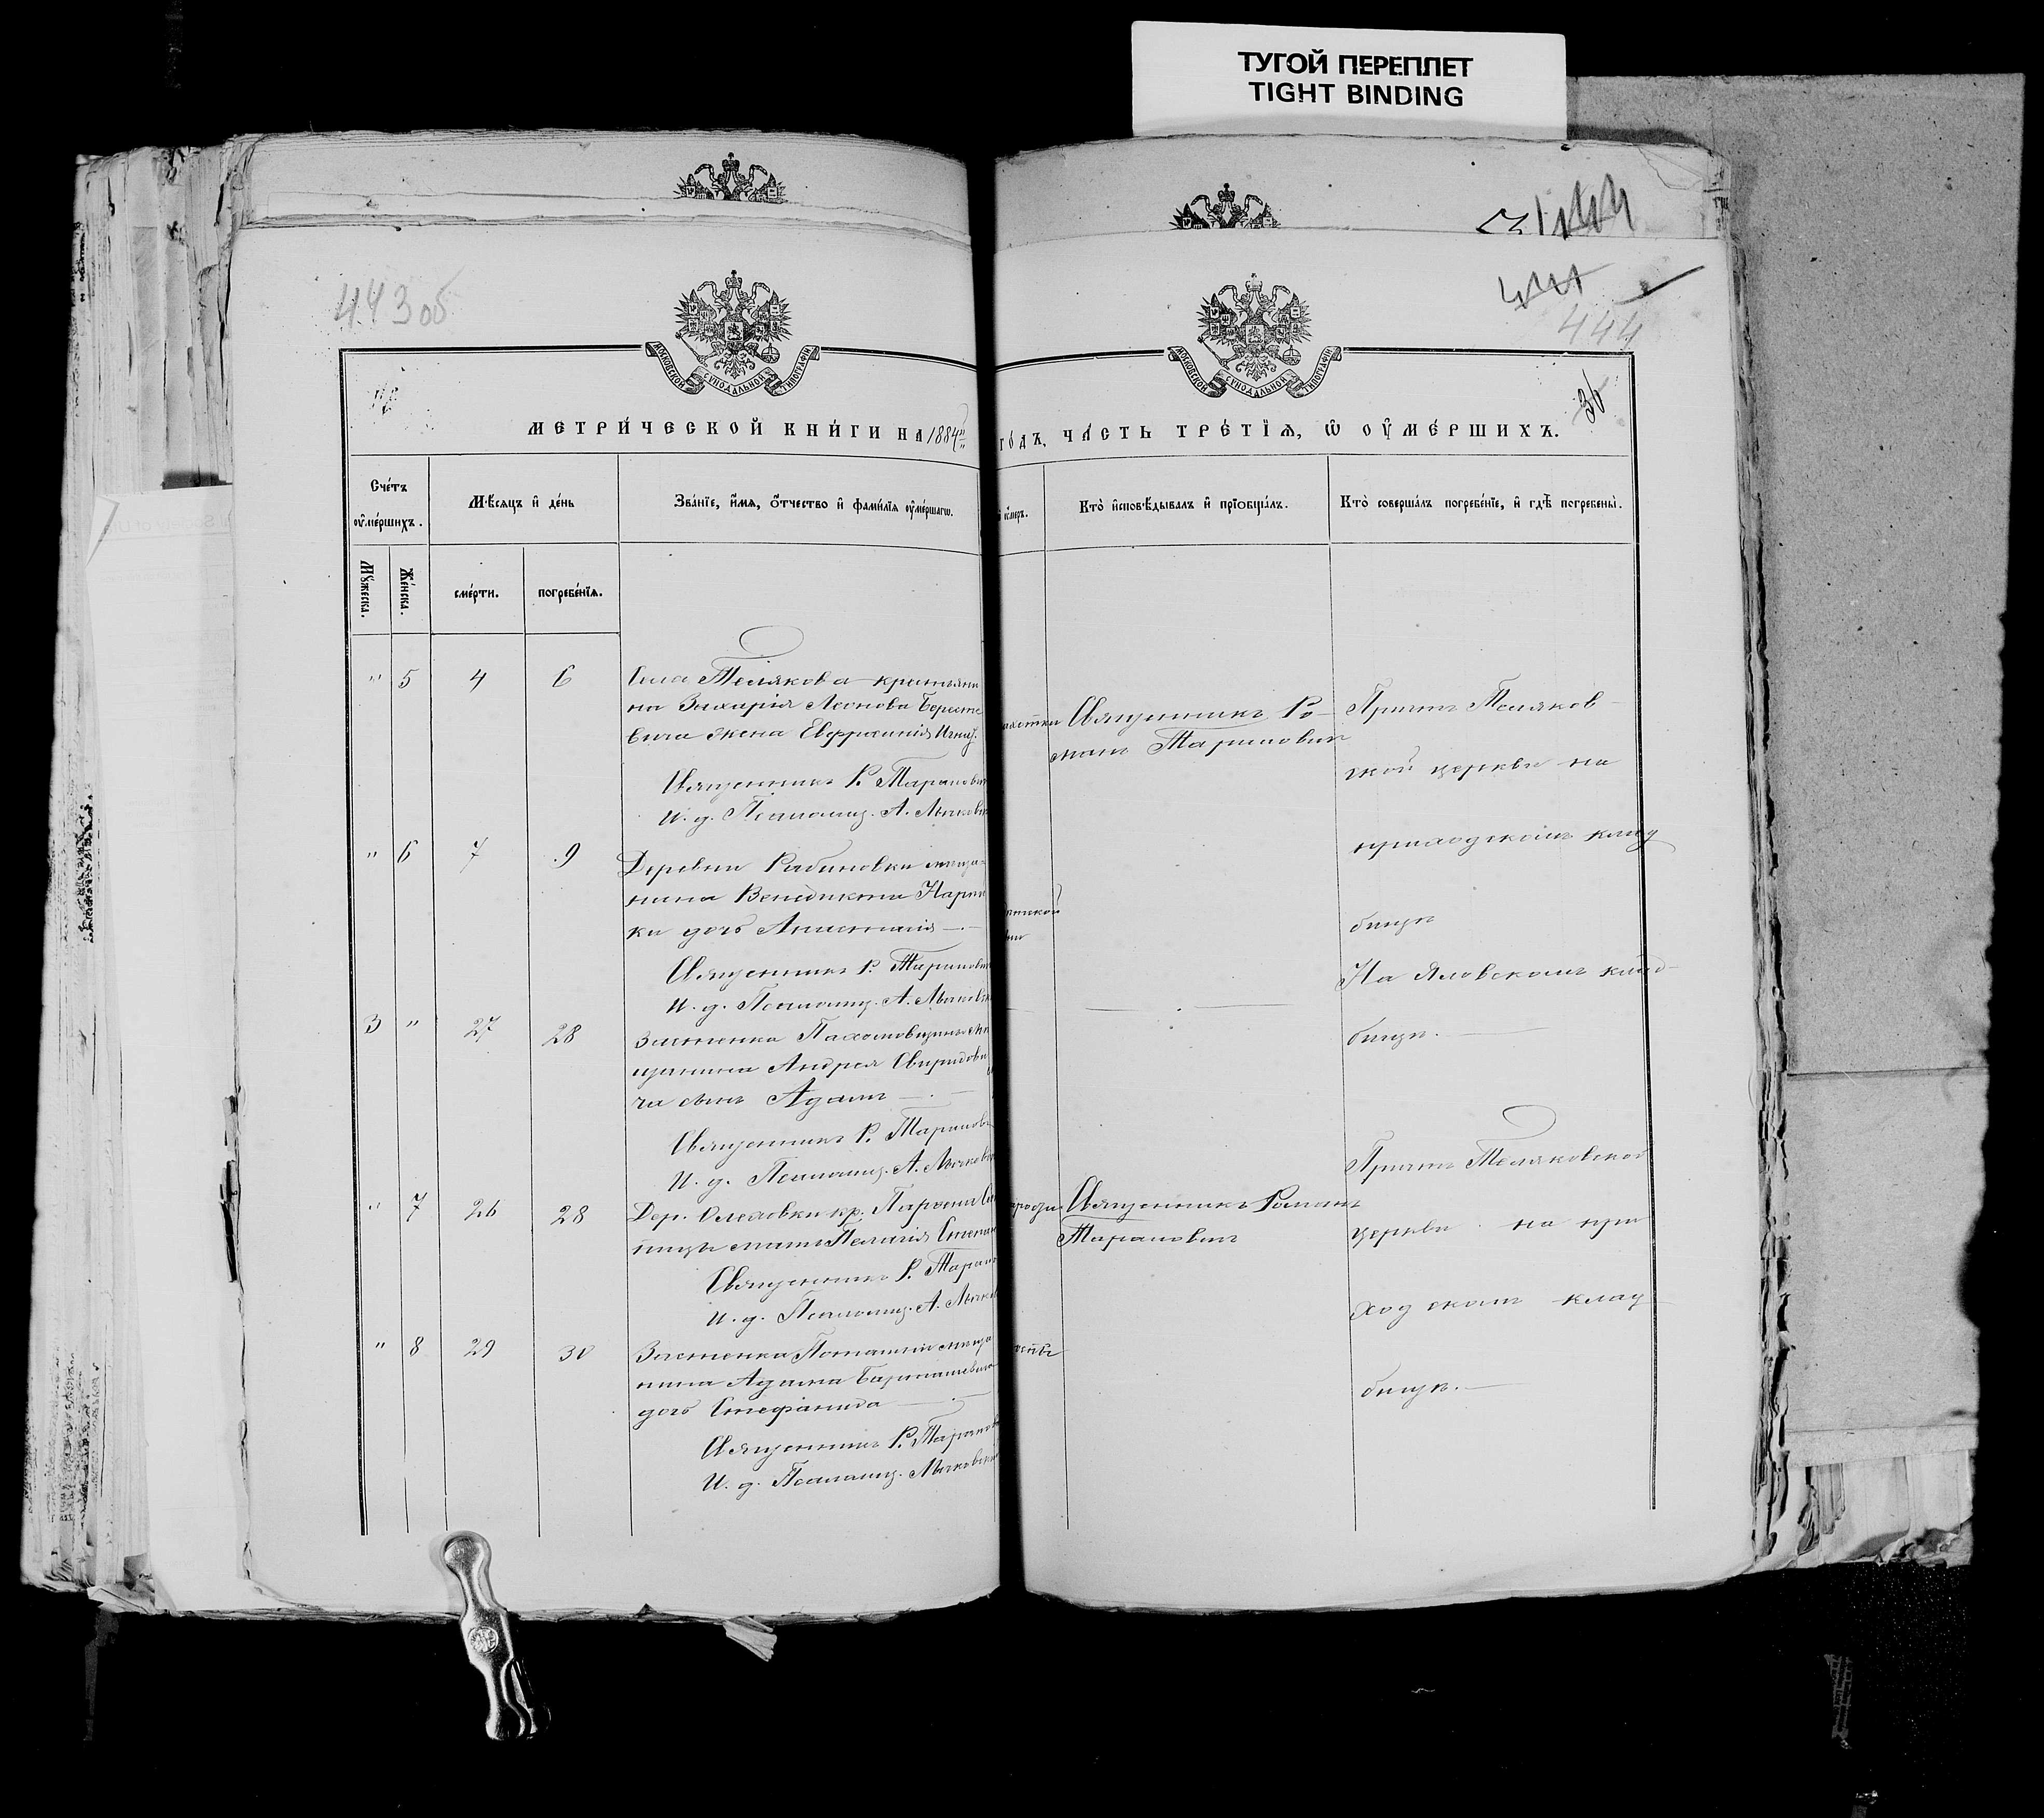 ТУГОЙ ПЕРЕПЛЕТ
TIGHT BINDING
443 об
444
36
МОСКОВСКОЙ СѴНОДАЛЬНОЙ ТИПОГРАФІИ
МОСКОВСКОЙ СѴНОДАЛЬНОЙ ТИПОГРАФІИ
МЕТРИ́ЧЕСКОЙ КНИ́ГИ НА 1884 го́дъ, ЧА́СТЬ ТРЕ́ТІѦ, Ѡ ОУ҆МЕ́РШИХЪ.
Сче́тъ
оу҆ме́ршихъ.
Му́жеска.
Же́нска.
Мѣ́сяцъ и҆ де́нь
сме́рти.
погребе́нїѧ.
Зва́нїе, и҆́мѧ, о҆́тчество и҆ фами́лїѧ оу҆ме́ршагѡ.
Кто̀ и҆сповѣ́дывалъ и҆ прїѡбща́лъ.
Кто̀ соверша́лъ погребе́нїе, и҆ гдѣ̀ погребены̀.
" 5 4 6
Села Телякова крестьяни
на Захарія Леонова Бересне
вича жена Евфросинія Игнат.
Священникъ Р. Тарановичъ
И. д. Псаломщ. А.
Священникъ Ро-
манъ Тарановичъ
Причтъ Теляков-
ской церкви на
приходскомъ клад
бищѣ
" 6 7 9
Деревни Рабиновки мѣща-
нина Венедикта
ки дочь Анастасія
Священникъ Р. Таранович
И. д. Псаломщ. А.
На Яловскомъ клад-
бищѣ.
3 " 27 28
Застенка Пахомовщины мѣ
щанина Андрея Свиридови
ча сынъ Адамъ
Священникъ Р. Таранов
И. д. Псаломщ. А.
" 7 26 28
Дер. кр.
мать Пелагія Степан
Священникъ Р. Таран
И. д. Псаломщ. А.
Священникъ Романъ
Тарановичъ
Причтъ Теляковской
церкви на при
ходскомъ клад
бищѣ.
" 8 29 30
Застенка мѣща
нина Адама
дочь Стефанида
Священникъ Р. Таранов
И. д. Псаломщ.